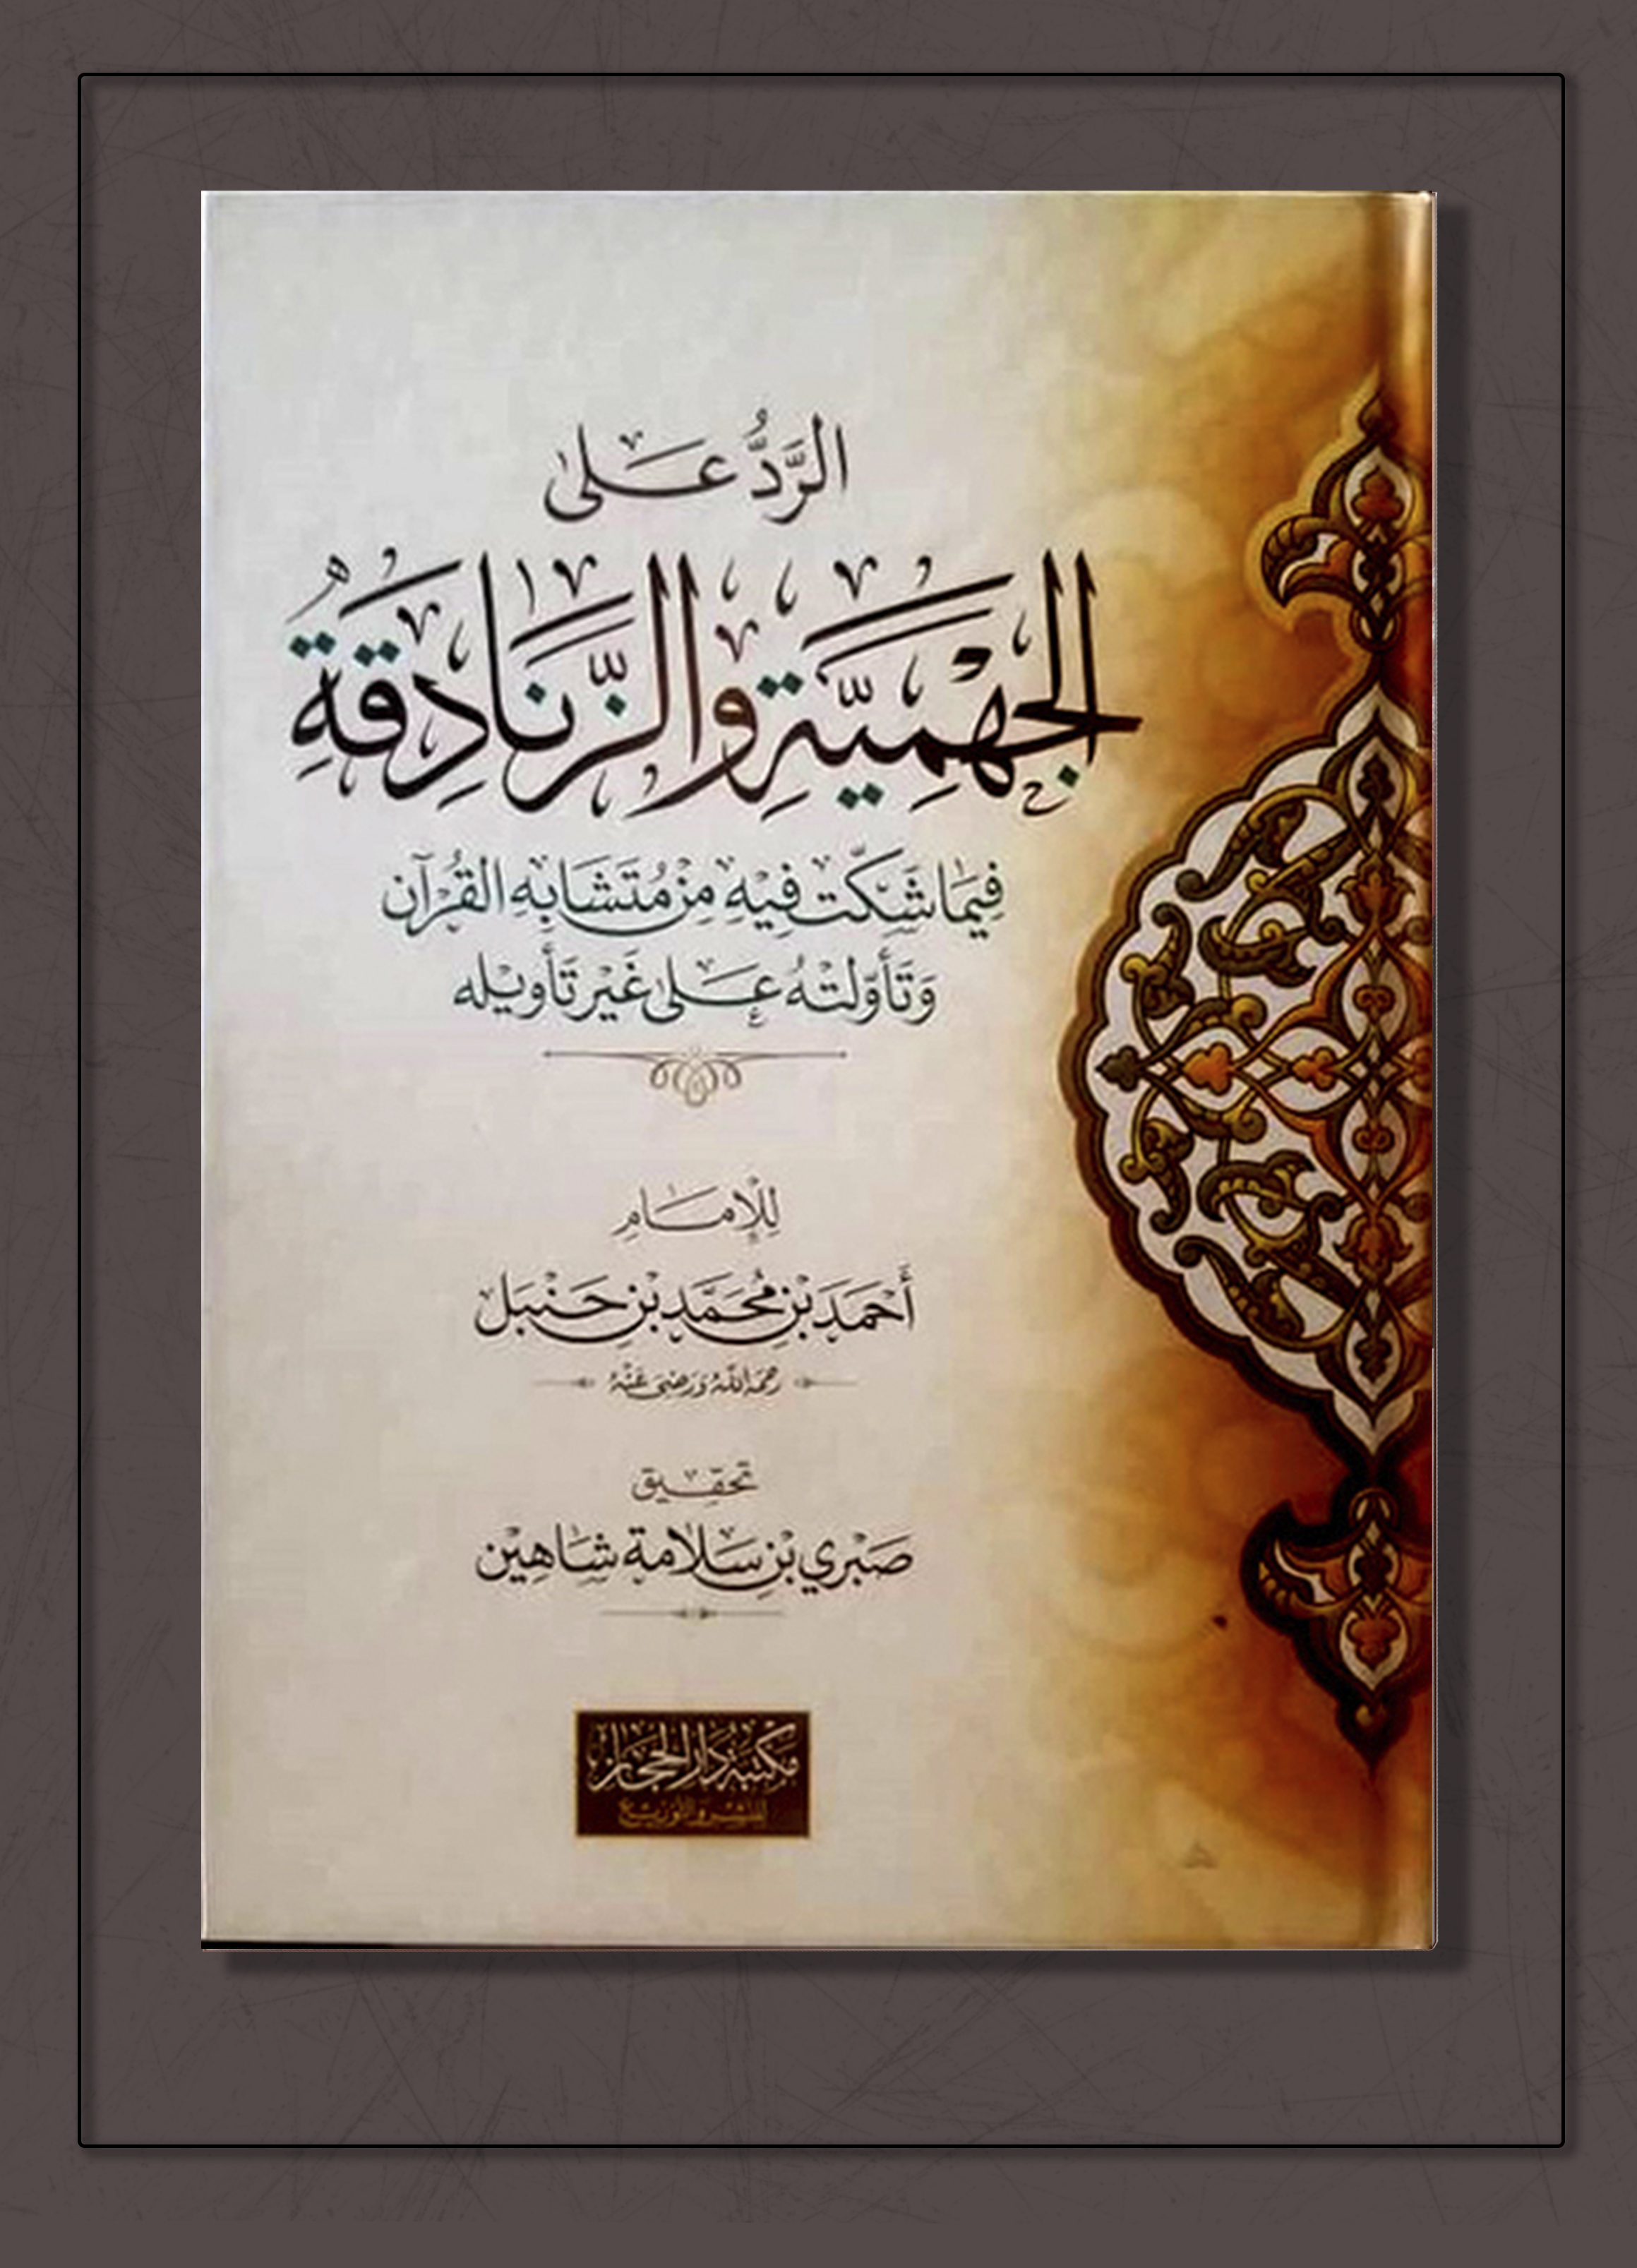 الرَّدُّ عَلى
الجَهْمِيَّةِ وَالزَّنَادِقَةِ
فِيمَا شَكَّت فِيْهِ مِنْ مُتَشَابِهِ القُرْآن
وَتَأَوّلتْهُ عَلى غَيْرِ تَأويْله
لِلْإِمَامِ
أَحْمَدَ بْنِ مُحَمَّد بْنِ حَنْبَل
رَحِمَهُ اللّٰهُ وَرَضِيَ عَنْهُ
تحقيق
صَبْرِي بْنِ سَلامة شَاهِيْن
مكتبة دار الحجاز
للنشر والتوزيع